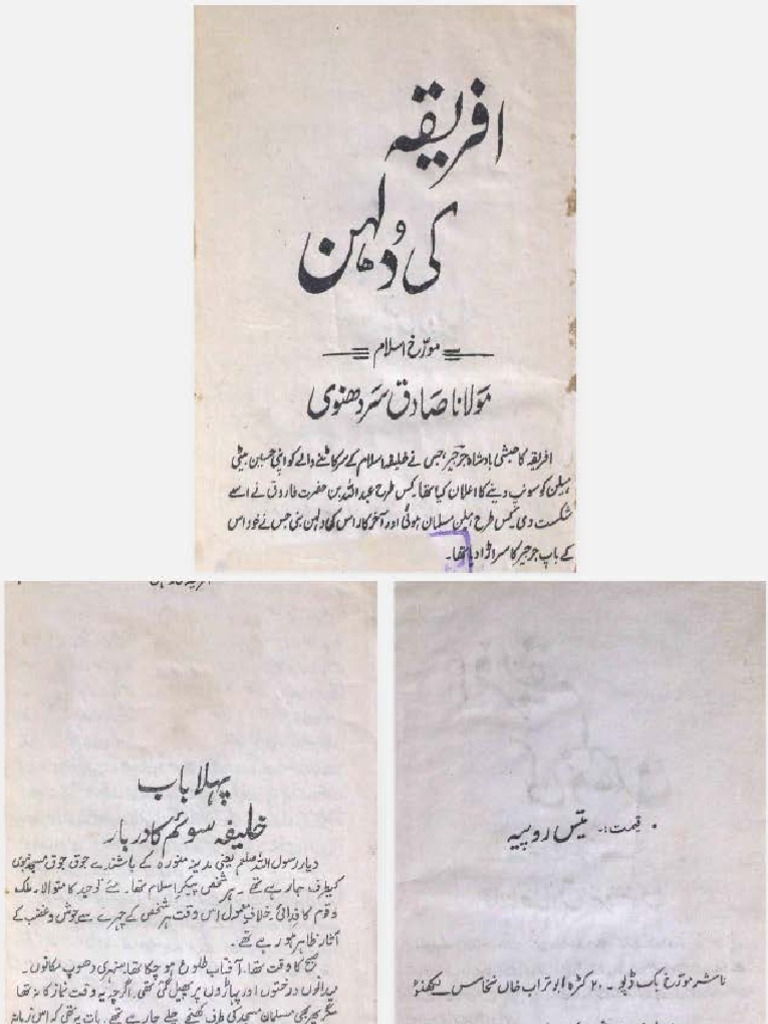 افریقہ
کی دُلہن
مورّخ اسلام
مولانا صادق سردھنوی
افریقہ کا حبشی بادشاہ جرجیر، جس نے خلیفۂ اسلام کے سر کاٹنے والے کو اپنی حسین بیٹی
ہیلن کو سونپ دینے کا اعلان کیا تھا۔ کس طرح عبداللہ بن حضرت فاروق نے اسے
شکست دی، کس طرح ہیلن مسلمان ہوئی اور آخر کار اس کی دلہن بنی جس نے خود اس
کے باپ جرجیر کا سر اڑا دیا تھا۔
پہلا باب
خلیفہ سوئم کا دربار
دیار رسول اللہ صلعم یعنی مدینہ منورہ کے باشندے جوق جوق مسجد نبوی
کیطرف جا رہے تھے۔ ہر شخص پیکرِ اسلام تھا۔ مئے توحید کا متوالا۔ ملک
و قوم کا فدائی۔ خلاف معمول اس وقت ہر شخص کے چہرے سے جوش و غضب کے
آثار ظاہر ہو رہے تھے۔
صبح کا وقت تھا، آفتاب طلوع ہو چکا تھا سنہری دھوپ مکانوں۔
میدانوں درختوں اور پہاڑوں پر پھیل گئی تھی۔ اگرچہ یہ وقت نماز کا نہ تھا
مگر پھر بھی مسلمان مسجد کی طرف کھنچے چلے جا رہے تھے۔ بات یہ تھی کہ اس زمانہ
قیمت:۔ تیس روپیہ
ناشر مورّخ بک ڈپو۔ ۲۰ کٹرہ ابو تراب خاں نخاس لکھنؤ